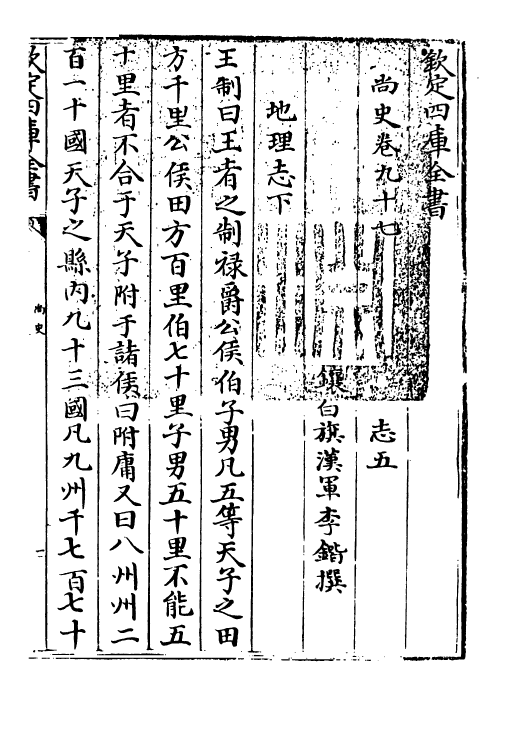 欽定四庫全書
尚史卷九十七 志五
鑲白旗漢軍李鍇撰
地理志下
王制曰王者之制禄爵公侯伯子男凡五等天子之田
方千里公侯田方百里伯七十里子男五十里不能五
十里者不合于天子附于諸侯曰附庸又曰八州州二
百一十國天子之縣内九十三國凡九州千七百七十
欽定四庫全書
尚史
一